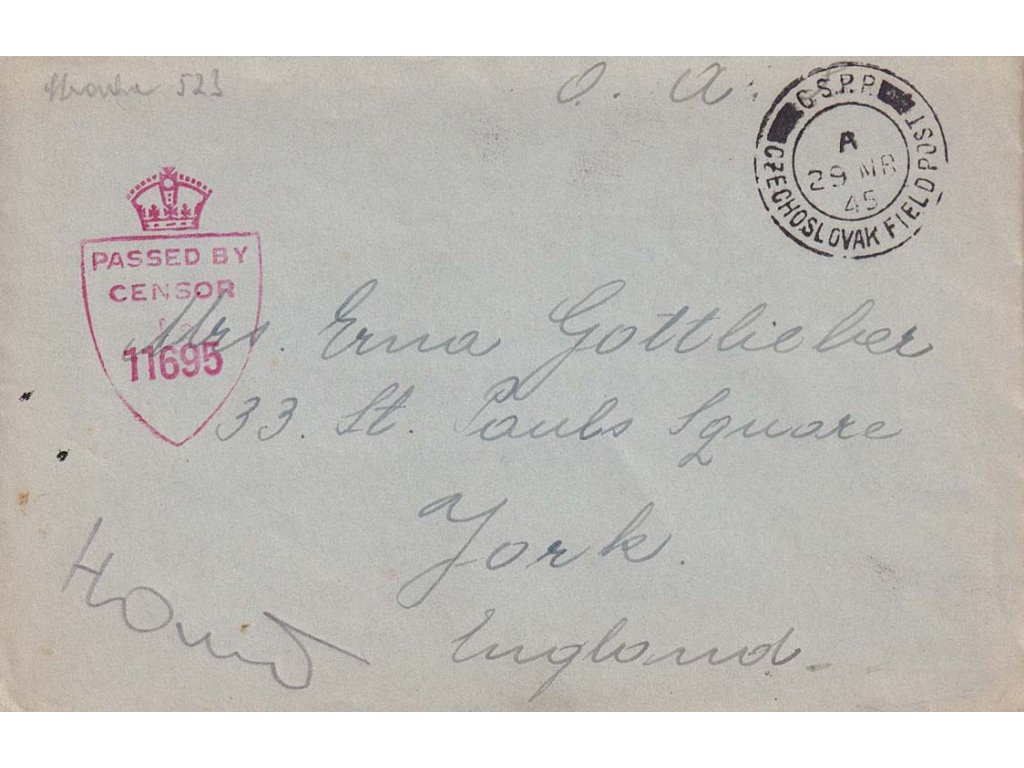 523
O. A.
C.S.P.P.
A
29 MR
45
CZECHOSLOVAK FIELD POST
PASSED BY
CENSOR
11695
Mrs. Erna Gottlieber
33. St. Pauls Square
York.
England.